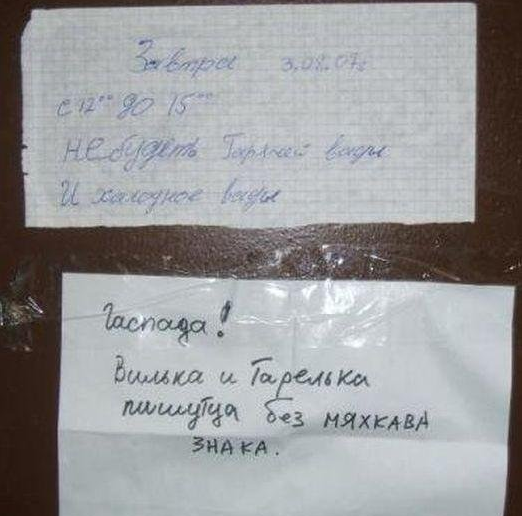 Завтра 3.08.07г
с 12⁰⁰ до 15⁰⁰
не будеть Гарячей вады
И халодное вады
Гаспада!
Вилька и Тарелька
пишутца без МЯХКАВА
ЗНАКА.